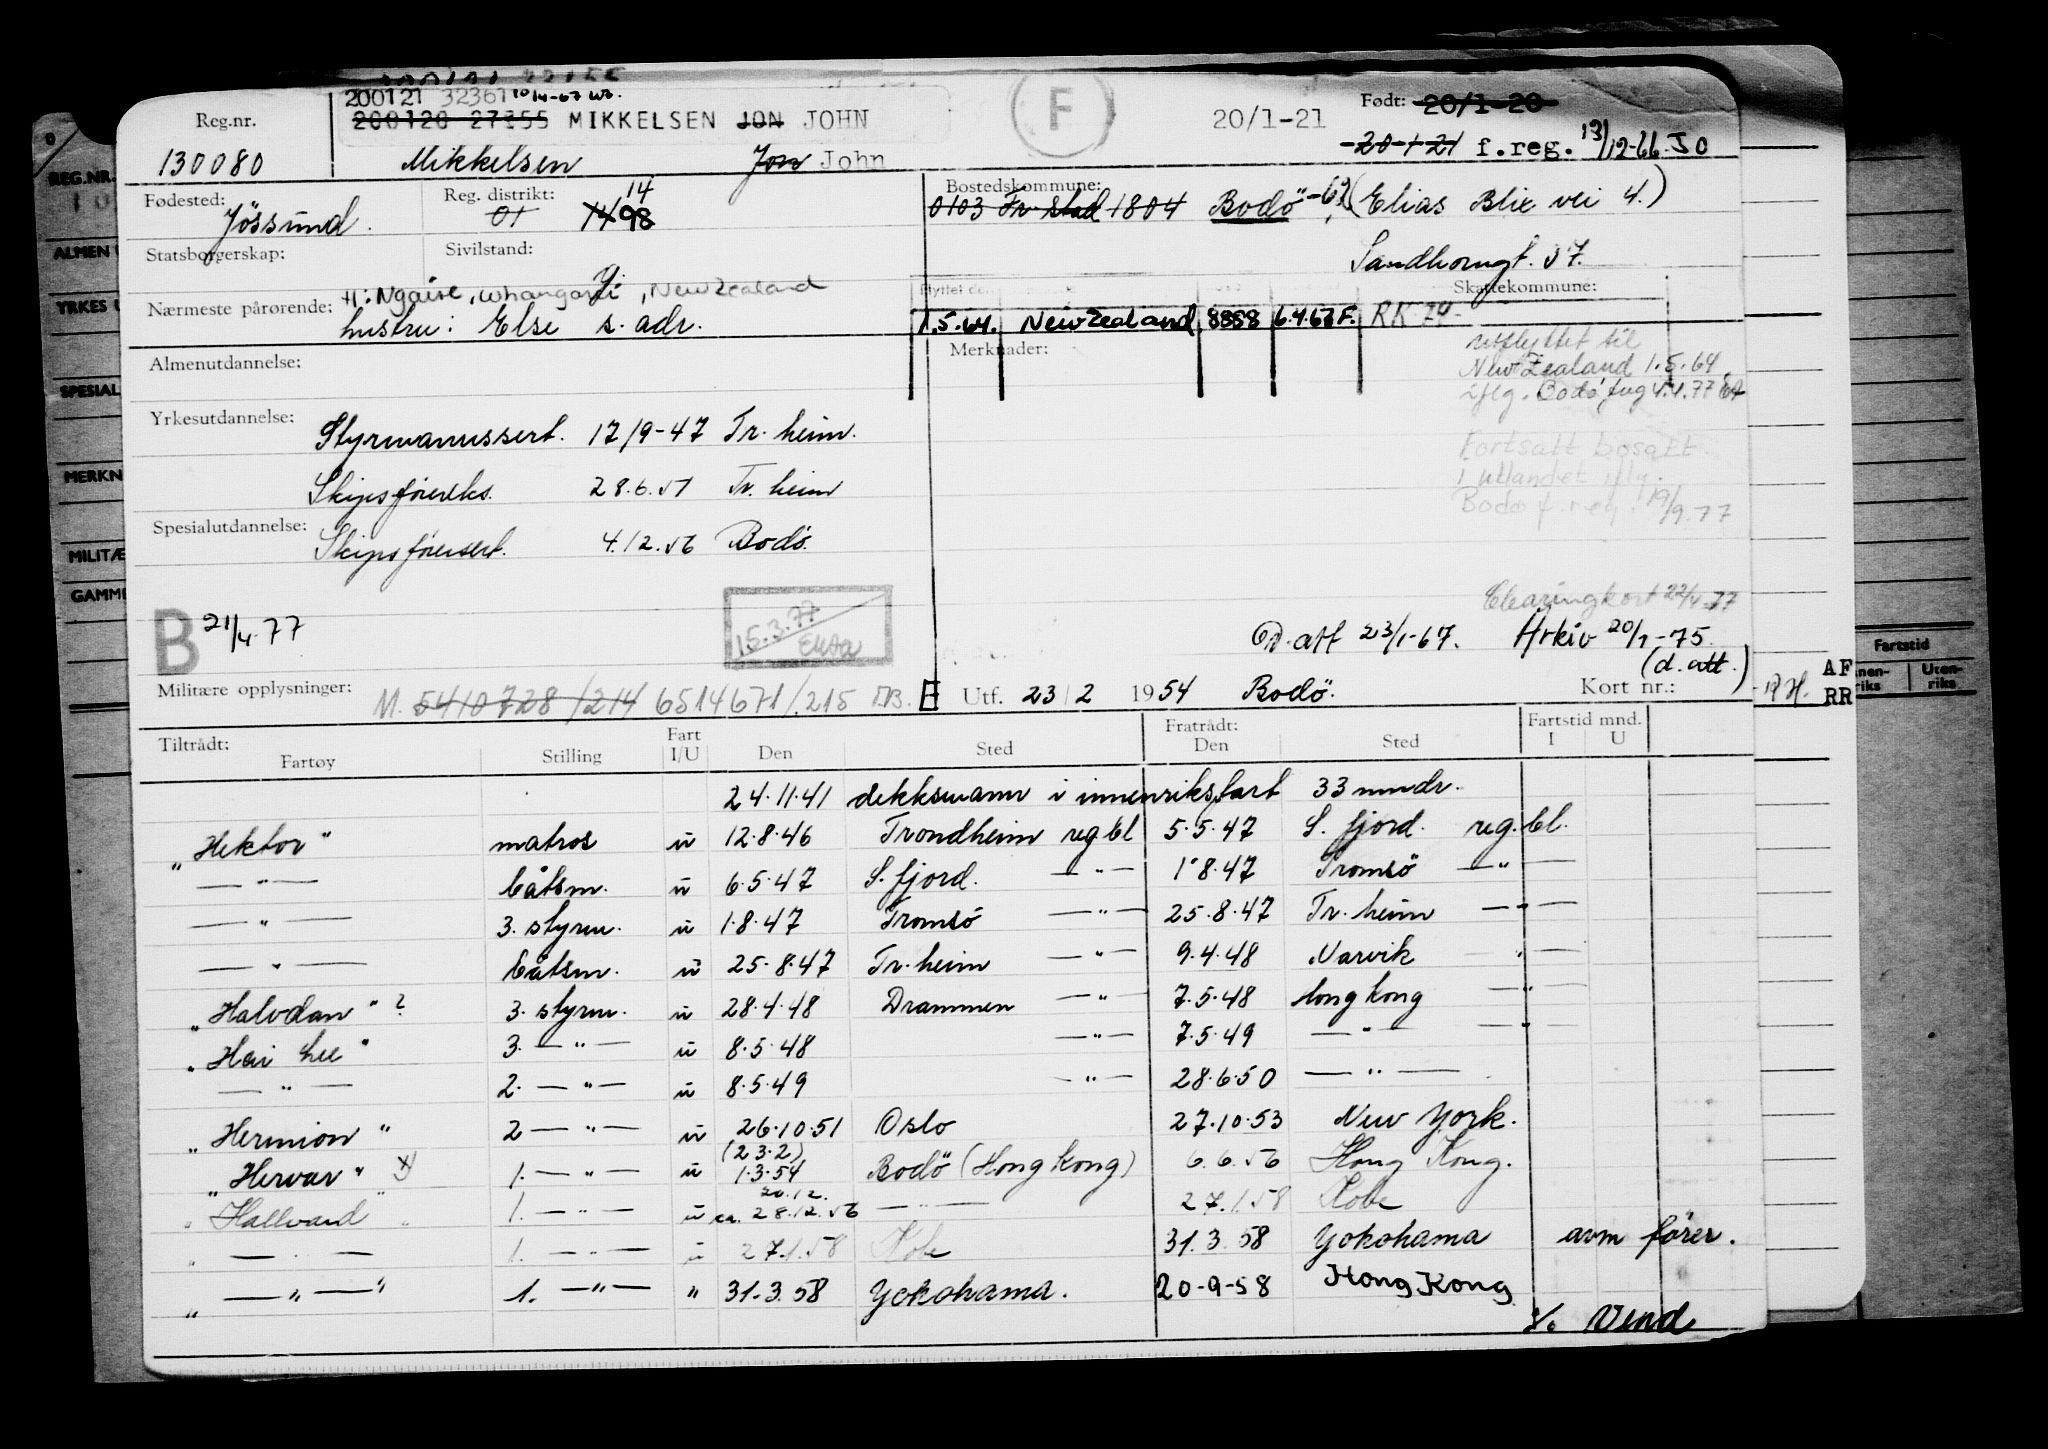 200121 32361 10/4-67
Reg.nr. 200120 27355 MIKKELSEN JON JOHN F 20/1-21 Født: 20/1-20
130080 Mikkelsen Jon John 20-1-21 f.reg. 13/12-66 JO
Fødested: Jössund. Reg. distrikt: 01 14 98 Bostedskommune: 0103 Fr.stad 1804 Bodö -69 (Elias Blix vei 4.)
Statsborgerskap: Sivilstand: Sandhorngt. 57.
Nærmeste pårørende: H: Ngaire, Whangarei, New Zealand Skattekommune:
hustru: Else s. adr. 1.5.64. New Zealand 8888 6.4.67 F. RK 74-
Almenutdannelse: Merknader: utflyttet til
New Zealand 1.5.64
iflg. Bodø
Yrkesutdannelse: Styrmannssert. 17/9-47 Tr. heim.
Fortsatt bosatt
Skipsførereks. 28.6.51 Tr. heim i utlandet iflg.
Bodø f.reg. 19/9.77
Spesialutdannelse: Skipsførersert. 4.12.56 Bodö.
Clearingkort 22/4-77
B 21/4.77 15.3.77 D. att 23/1-67. Arkiv 20/1-75.
(d. att.)
Militære opplysninger: M. 5410728/214 6514671/.215 E Utf. 23/2 1954 Bodö. Kort nr.: AF
RR
Tiltrådt: Fart Fratrådt: Fartstid mnd.
Fartøy Stilling I/U Den Sted Den Sted I U
24.11.41 dekksmann i innenriksfart 33 mndr.
"Hektor" matros u 12.8.46 Trondheim reg.bl 5.5.47 S. fjord. reg.bl.
— " — båtsm. u 6.5.47 S. fjord. — " — 1.8.47 Tromsö — " —
— " — 3. styrm. u 1.8.47 Tromsö — " — 25.8.47 Tr. heim — " —
— " — båtsm. u 25.8.47 Tr. heim — " — 9.4.48 Narvik — " —
"Halvdan" ? 3. styrm. u 28.4.48 Drammen — " — 7.5.48 Hong kong — " —
"Hai Lee" 3. — " — u 8.5.48 — " — 7.5.49 — " — — " —
— " — 2. — " — u 8.5.49 — " — 28.6.50 — " —
"Hermion" 2 — " — u 26.10.51 Oslo 27.10.53 New York.
(23.2)
"Hervar" x) 1. — " — u 1.3.54 Bodö (Hong Kong) 6.6.56 Hong Kong.
20.12.
"Hallvard" 1. — " — u ca. 28.12.56 — " — 27.1.58 Kobe
— " — 1. — " — u 27.1.58 Kobe 31.3.58 Yokohama avm fører.
" — " — " 1. — " — " 31.3.58 Yokohama. 20-9-58 Hong Kong
Vend
REG.NR.
ALMEN
YRKES
SPESIAL
MERKN
MILITÆ
GAMME
Fartstid
Uten-
riks